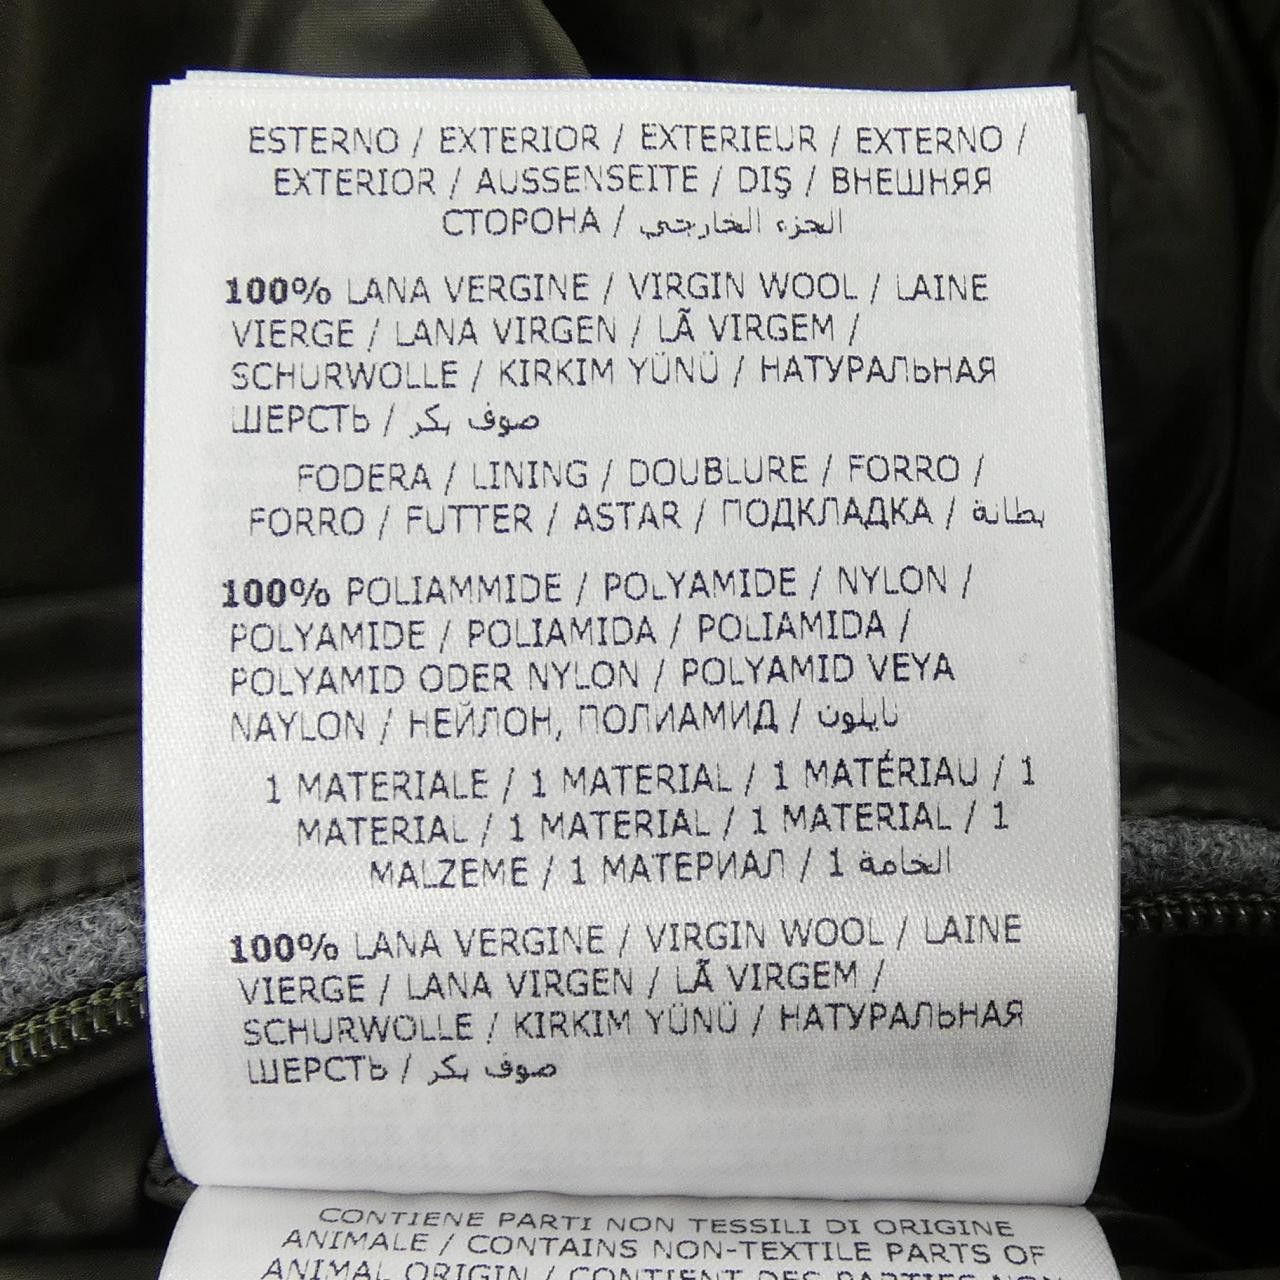 ESTERNO / EXTERIOR / EXTERIEUR / EXTERNO /
EXTERIOR / AUSSENSEITE / DIŞ / ВНЕШНЯЯ
СТОРОНА / الجزء الخارجي
100% LANA VERGINE / VIRGIN WOOL / LAINE
VIERGE / LANA VIRGEN / LÃ VIRGEM /
SCHURWOLLE / KIRKIM YÜNÜ / НАТУРАЛЬНАЯ
ШЕРСТЬ / صوف بكر
FODERA / LINING / DOUBLURE / FORRO /
FORRO / FUTTER / ASTAR / ПОДКЛАДКА / بطانة
100% POLIAMMIDE / POLYAMIDE / NYLON /
POLYAMIDE / POLIAMIDA / POLIAMIDA /
POLYAMID ODER NYLON / POLYAMID VEYA
NAYLON / НЕЙЛОН, ПОЛИАМИД / نايلون
1 MATERIALE / 1 MATERIAL / 1 MATÉRIAU / 1
MATERIAL / 1 MATERIAL / 1 MATERIAL / 1
MALZEME / 1 МАТЕРИАЛ / 1 الخامة
100% LANA VERGINE / VIRGIN WOOL / LAINE
VIERGE / LANA VIRGEN / LÃ VIRGEM /
SCHURWOLLE / KIRKIM YÜNÜ / НАТУРАЛЬНАЯ
ШЕРСТЬ / صوف بكر
CONTIENE PARTI NON TESSILI DI ORIGINE
ANIMALE / CONTAINS NON-TEXTILE PARTS OF
ANIMAL ORIGIN / CONTIENT DES PARTIES NON